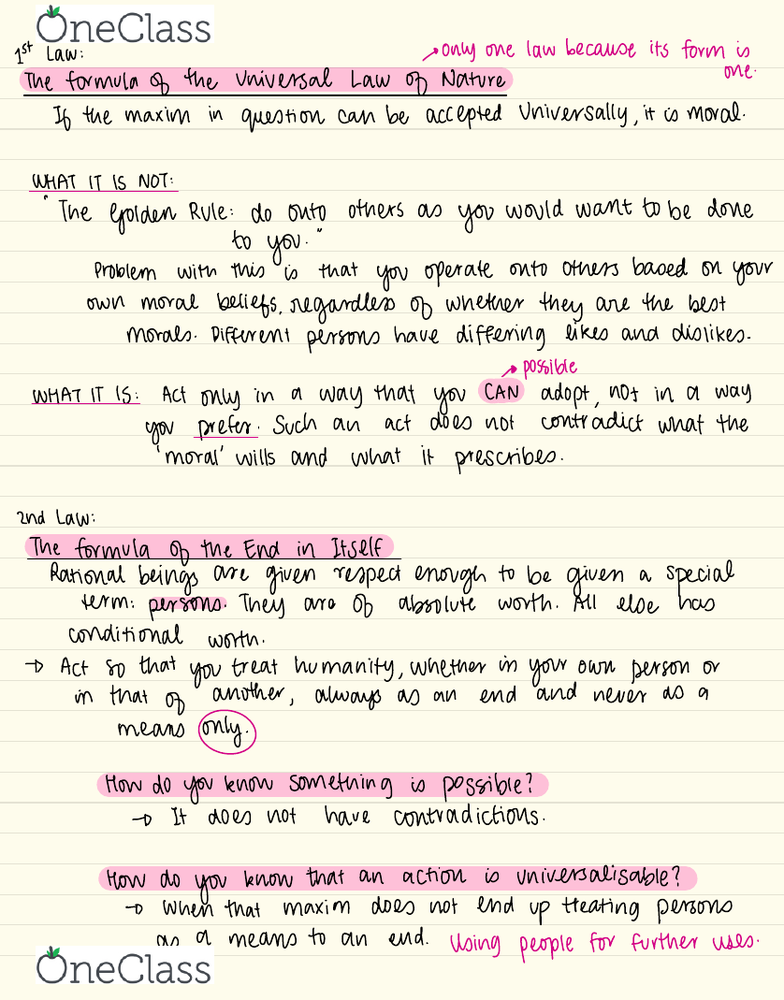 OneClass
1st Law:
only one law because its form is
one.
The formula of the Universal Law of Nature
If the maxim in question can be accepted Universally, it is moral.
WHAT IT IS NOT:
"The Golden Rule: do onto others as you would want to be done
to you."
Problem with this is that you operate onto others based on your
own moral beliefs, regardless of whether they are the best
morals. Different persons have differing likes and dislikes.
possible
WHAT IT IS: Act only in a way that you CAN adopt, not in a way
you prefer. Such an act does not contradict what the
'moral' wills and what it prescribes.
2nd Law:
The formula of the End in Itself
Rational beings are given respect enough to be given a special
term: persons. They are of absolute worth. All else has
conditional worth.
→ Act so that you treat humanity, whether in your own person or
in that of another, always as an end and never as a
means only.
How do you know something is possible?
→ It does not have contradictions.
How do you know that an action is universalisable?
→ When that maxim does not end up treating persons
as a means to an end. Using people for further uses.
OneClass